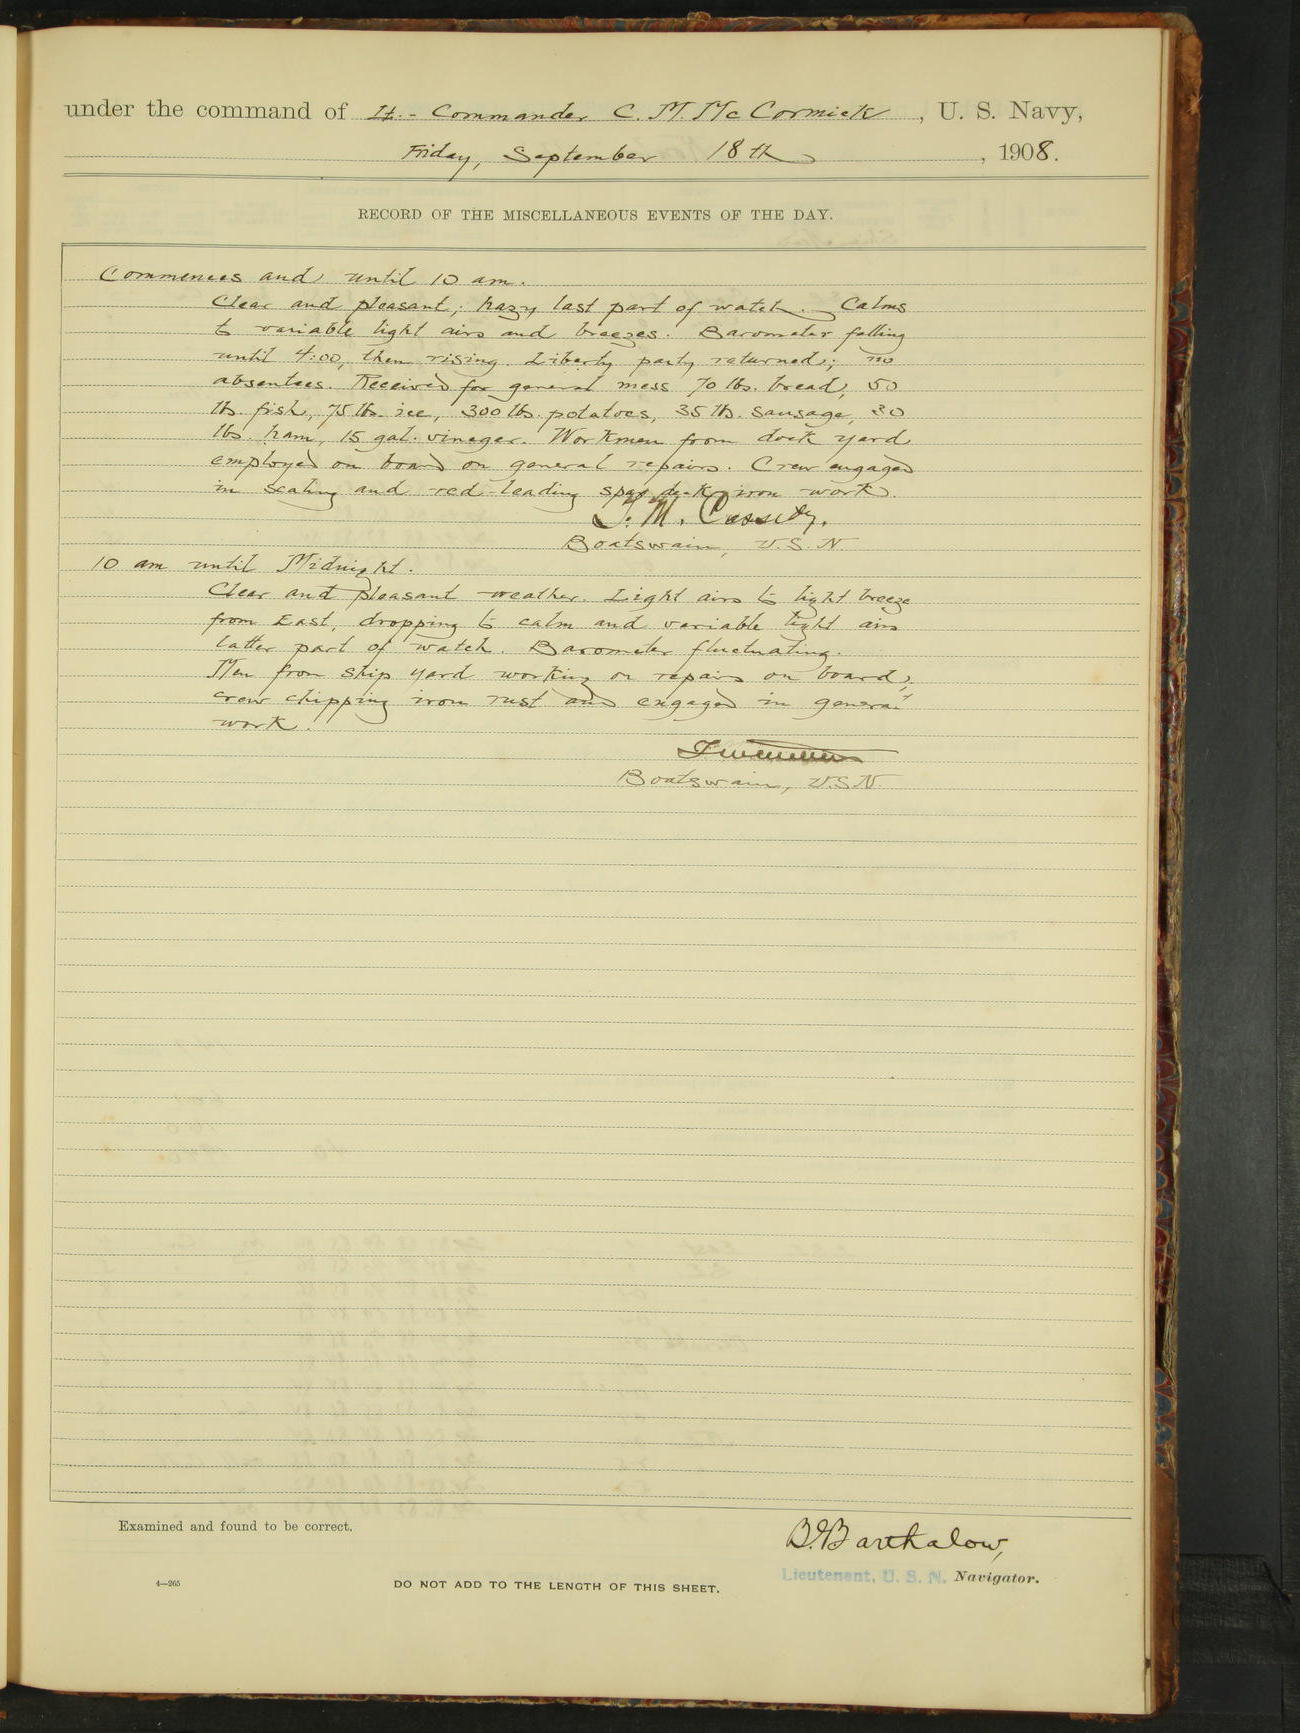 under the command of Lt.- Commander C. M. McCormick, U. S. Navy,
Friday, September 18th, 1908.
RECORD OF THE MISCELLANEOUS EVENTS OF THE DAY.
Commences and until 10 am.
Clear and pleasant; hazy last part of watch. Calms
to variable light airs and breezes. Barometer falling
until 4:00, then rising. Liberty party returned; no
absentees. Received for general mess 70 lbs. bread, 50
lbs. fish, 75 lbs. ice, 300 lbs. potatoes, 35 lbs. sausage, 30
lbs. ham, 15 gal. vinegar. Workmen from dock yard
employed on board on general repairs. Crew engaged
in scaling and red leading spar deck iron work.
J. M. Cassidy,
Boatswain, U.S.N.
10 am until Midnight.
Clear and pleasant weather. Light airs to light breeze
from East, dropping to calm and variable light airs
latter part of watch. Barometer fluctuating.
Men from ship yard working on repairs on board;
crew chipping iron rust and engaged in general
work.
Boatswain, U.S.N.
Examined and found to be correct.
B. Barthalow,
Lieutenant, U. S. N. Navigator.
4—265
DO NOT ADD TO THE LENGTH OF THIS SHEET.